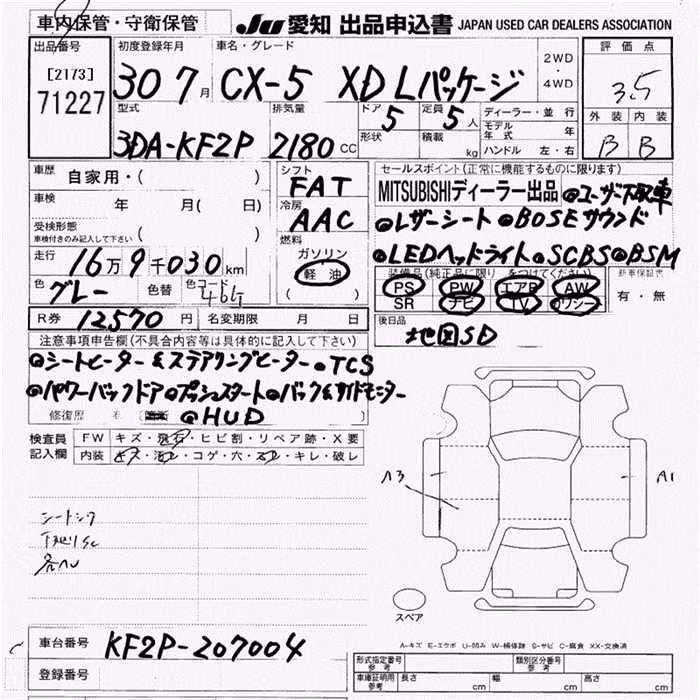 車内保管・守衛保管 JU 愛知 出品申込書 JAPAN USED CAR DEALERS ASSOCIATION
出品番号 初度登録年月 車名・グレード 2WD・4WD 評価点
[2173] 30 7月 CX-5 XD Lパッケージ 3.5
71227 型式 排気量 ドア 5 定員 5人 ディーラー・並行 外装 内装
3DA-KF2P 2180CC 形状 積載 kg モデル年式 年 B B
ハンドル 左・右
車歴 自家用・( ) シフト FAT セールスポイント(正常に機能するものに限ります)
車検 年 月( 日) 冷房 AAC MITSUBISHIディーラー出品 ●ユーザー下取車
受検形態 ●レザーシート ●BOSEサウンド
車検付きのみ記入して下さい( ) 燃料 ガソリン ●LEDヘッドライト ●SCBS ●BSM
走行 16万9千030km 軽油 装備品(純正品に限り をつけてください) 新車保証書
色 グレー 色替 色コード 46G ( ) PS PW エアB AW 有・無
SR ナビ TV カワシート
R券 12,570円 名変期限 月 日 後日品 地図SD
注意事項申告欄(不具合内容等は具体的に記入して下さい)
●シートヒーター&ステアリングヒーター ●TCS
●パワーバックドア ●プッシュスタート ●バック&サイドモニター
修復歴 ●HUD
検査員記入欄 FW キズ・飛石・ヒビ割・リペア跡・X要
内装 キズ・汚レ・コゲ・穴・スレ・キレ・破レ
A3 A1
シートシワ
スペア
A-キズ E-エクボ U-凹み W-補修跡 S-サビ C-腐食 XX-交換済
車台番号 KF2P-207004
登録番号
形式指定番号 参考 類別区分番号 参考
車庫証明用 参考 長さ cm 幅 cm 高さ cm